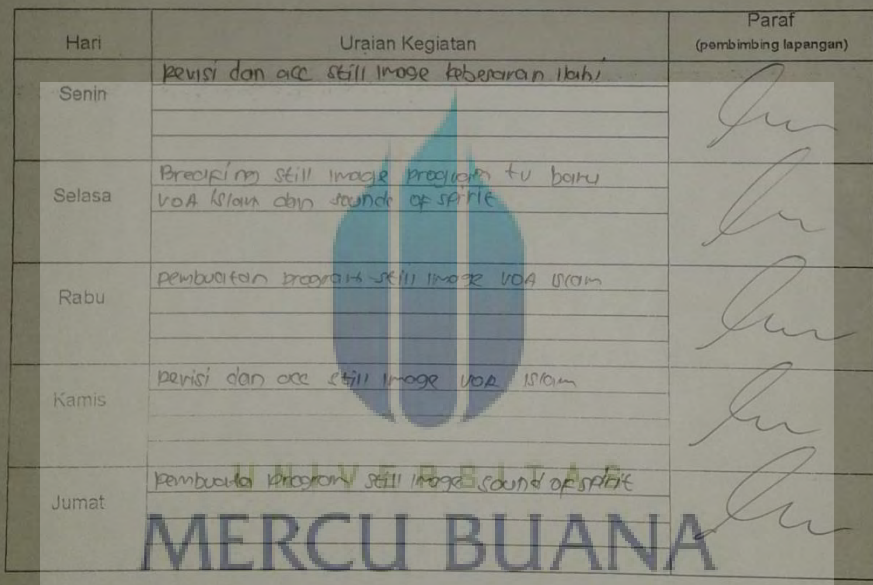 Hari Uraian Kegiatan Paraf
(pembimbing lapangan)
Senin
Revisi dan acc still image kebenaran ilahi
Selasa
Breafing still image program tv baru
VOA Islam dan sound of spirit
Rabu
Pembuatan program still image VOA Islam
Kamis
Revisi dan acc still image VOA Islam
Jumat
Pembuata program still image sound of spirit
UNIVERSITAS
MERCU BUANA